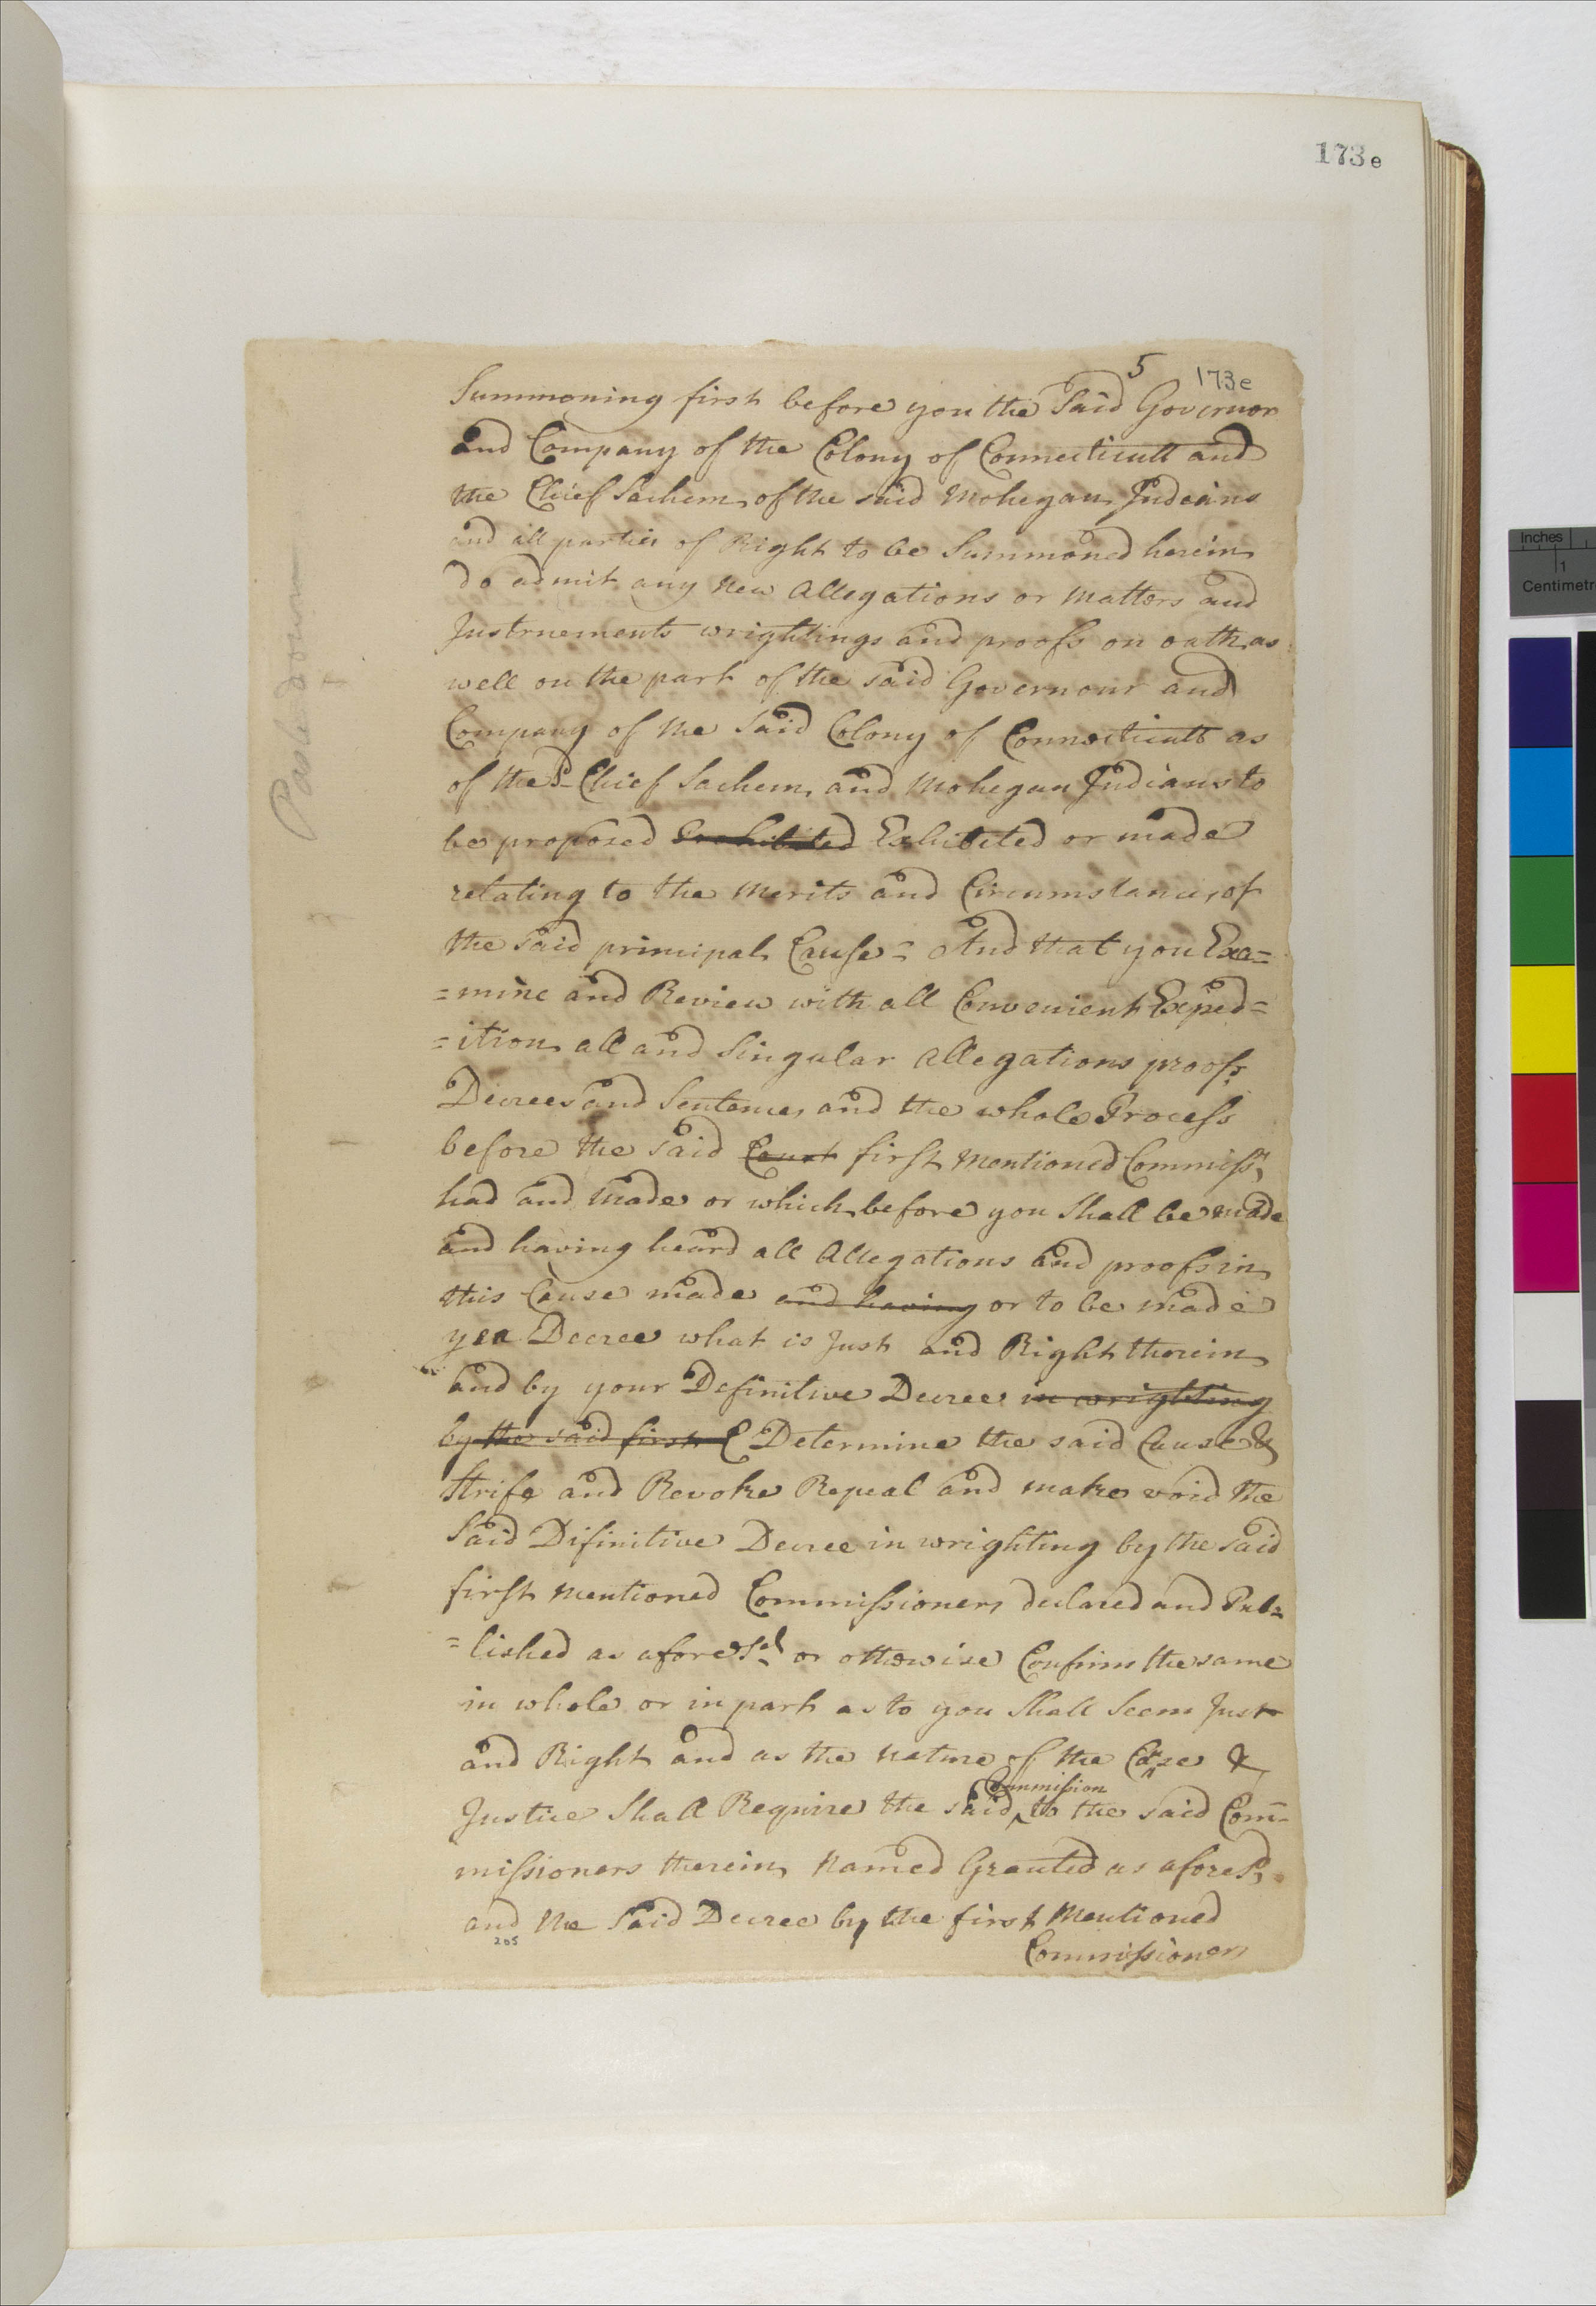 173e
5
173e
Summoning first before you the Said Governor
and Company of the Colony of Connecticutt and
the Chief Sachem of the said Mohegan Indians
and all parties of Right to be Summoned herein
do admit any New Allegations or Matters and
Instruements wrightings and proofs on oath as
well on the part of the said Governour and
Company of the Said Colony of Connecticutt as
of the sd Chief Sachem and Mohegan Indians to
be proposed Exhibited Exhibited or made
relating to the Merits and Circumstances of
the said principal Cause = And that you Exa=
=mine and Review with all Convenient Exped=
=ition all and Singular Allegations proofs
Decrees and Sentences and the whole Process
before the said Court first Mentioned Commissrs
had and Made or which before you Shall be made
and having heard all Allegations and proofs in
this Cause made and having or to be made
yea Decree what is Just and Right therein
and by your Definitive Decree in wrighting
by the said first C Determine the said Cause &
Strife and Revoke Repeal and make void the
Said Difinitive Decree in wrighting by the Said
first Mentioned Commissioners declared and Pub=
=lished as aforesd or otherwise Confirm the same
in whole or in part as to you Shall Seem Just
and Right and as the Nature of the Case &
Commission
Justice Shall Require the said ‸ to the said Com=
missioners therein Named Granted as aforesd
and the Said Decree by the first Mentioned
Commissioners
205
Paste down